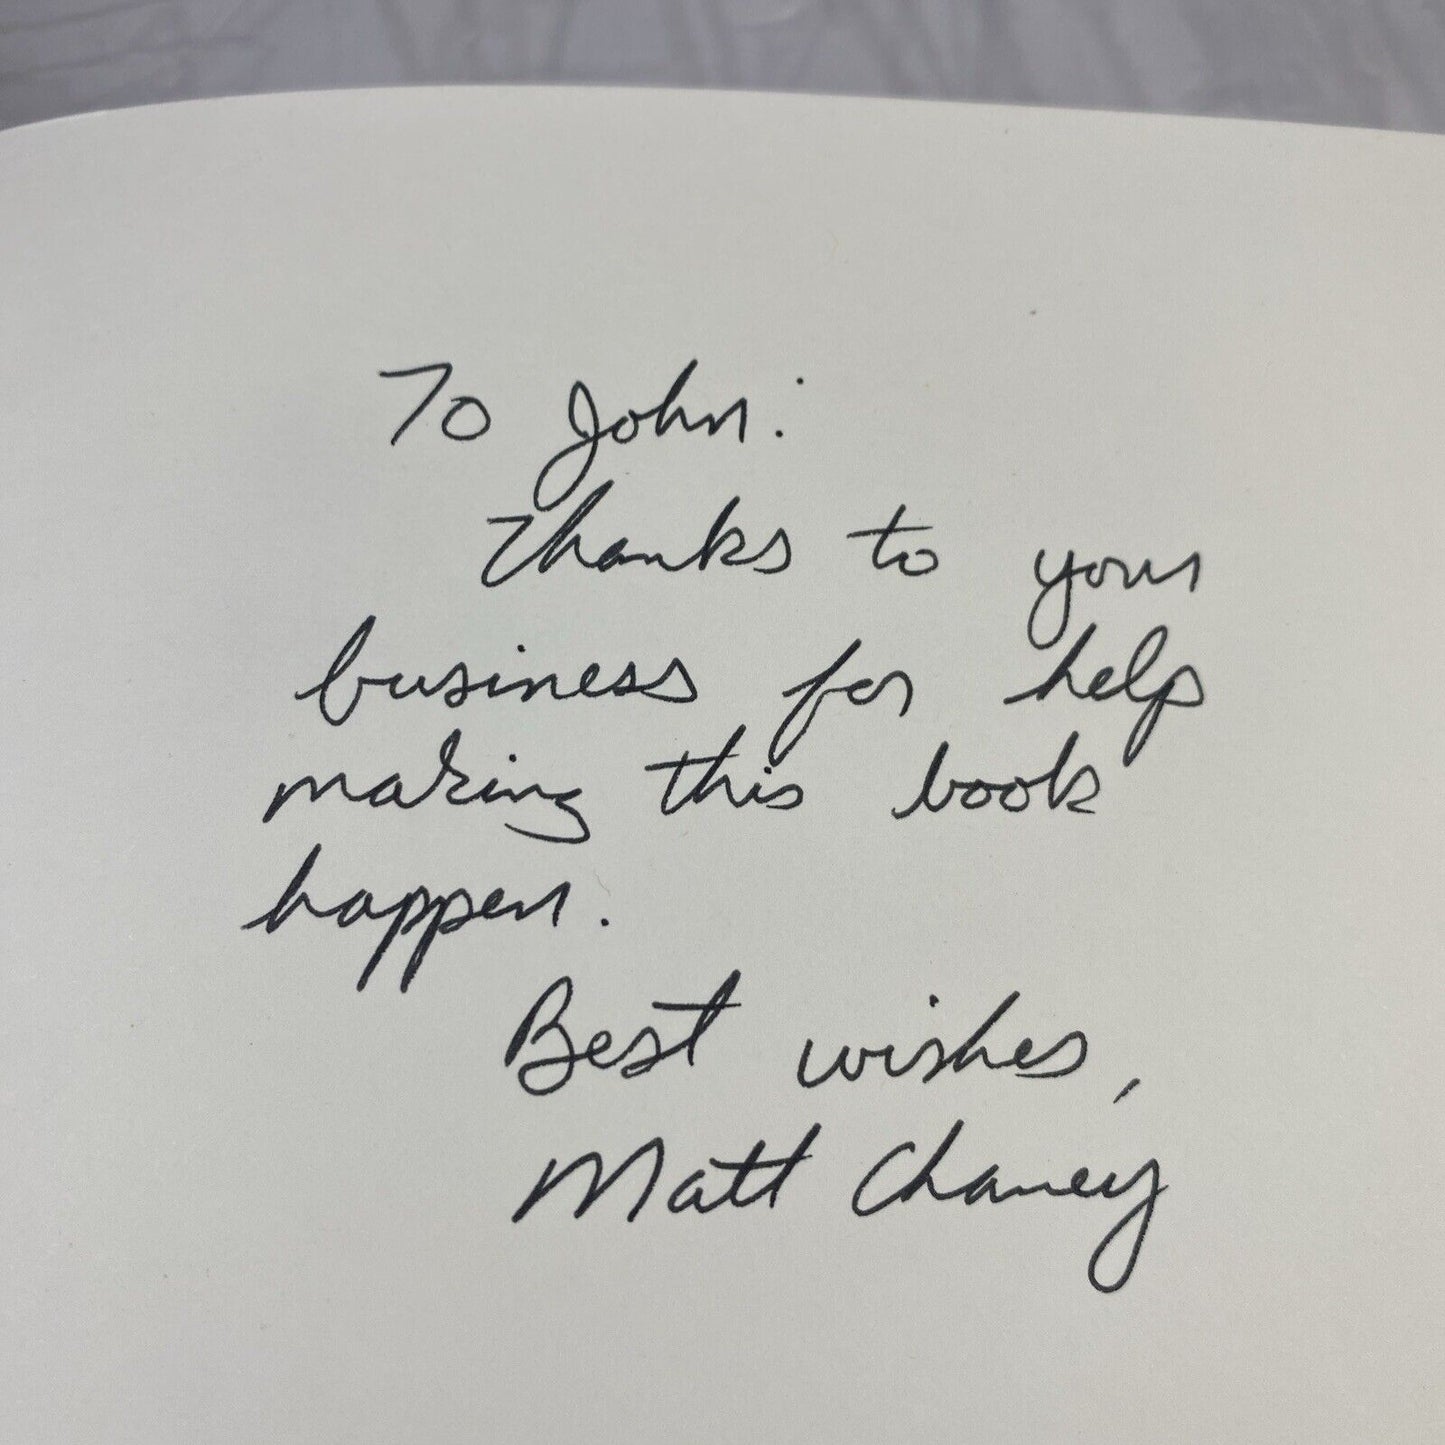 To John:
Thanks to your
business for help
making this book
happen.
Best wishes,
Matt Chaney